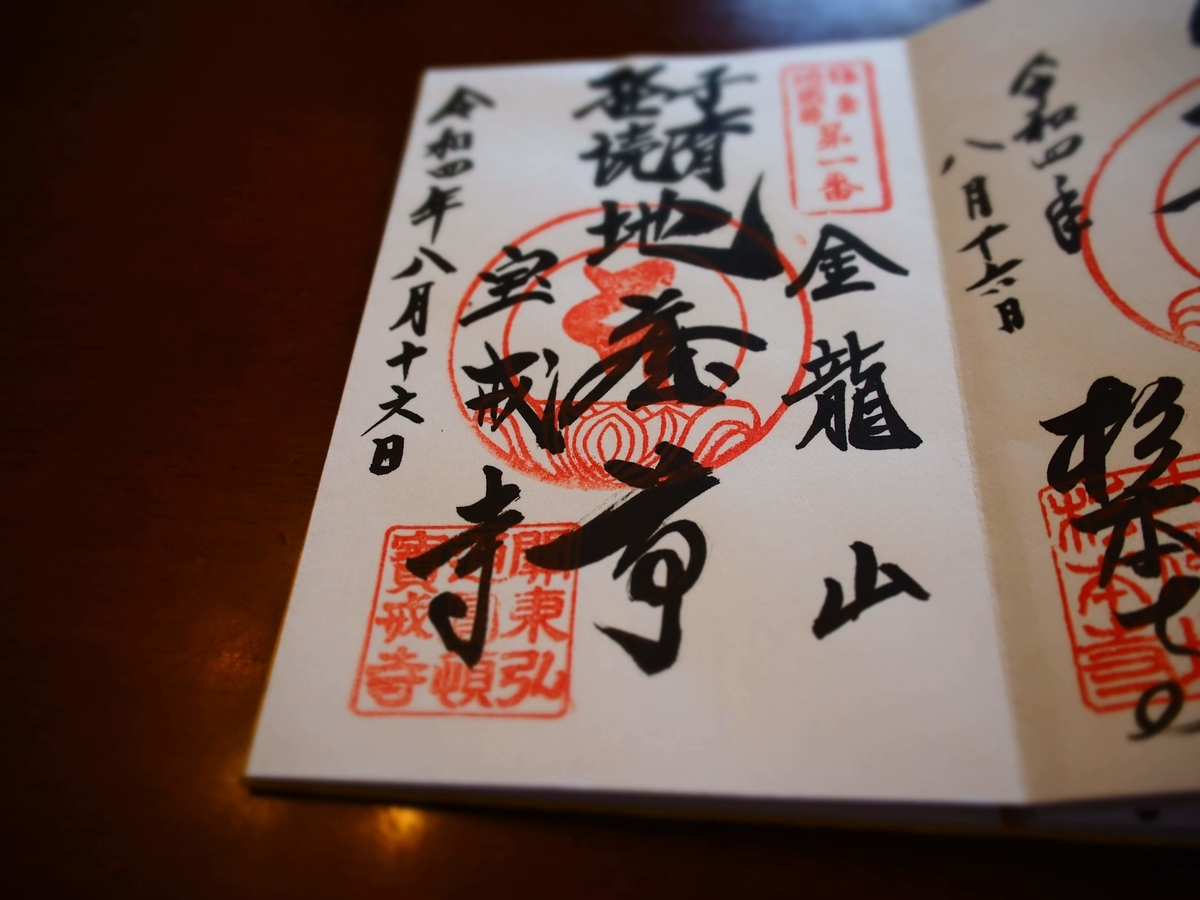 令和四年
八月十六日
杉本
第一番
金龍山
子育
経読
地蔵尊
宝戒寺
關東弘
通圓頓
寶戒寺
令和四年八月十六日